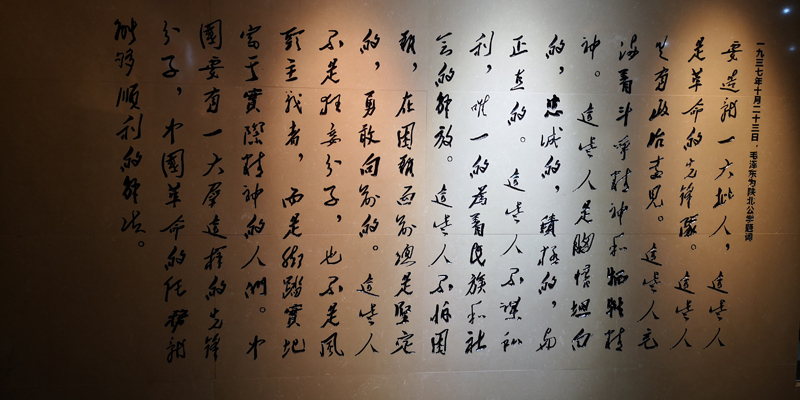 一九三七年十月二十三日，毛泽东为陕北公学题词
要造就一大批人，這些人
是革命的先锋隊。這些人
具有政治远見。這些人充
满着斗争精神和牺牲精
神。這些人是胸懷坦白
的，忠诚的，積極的，与
正直的。這些人不謀私
利，唯一的为着民族和社
会的解放。這些人不怕困
難，在困難面前總是堅定
的，勇敢向前的。這些人
不是狂妄分子，也不是風
頭主義者，而是脚踏實地
富于實際精神的人們。中
國要有一大群這樣的先锋
分子，中國革命的任務就
能够順利的解决。